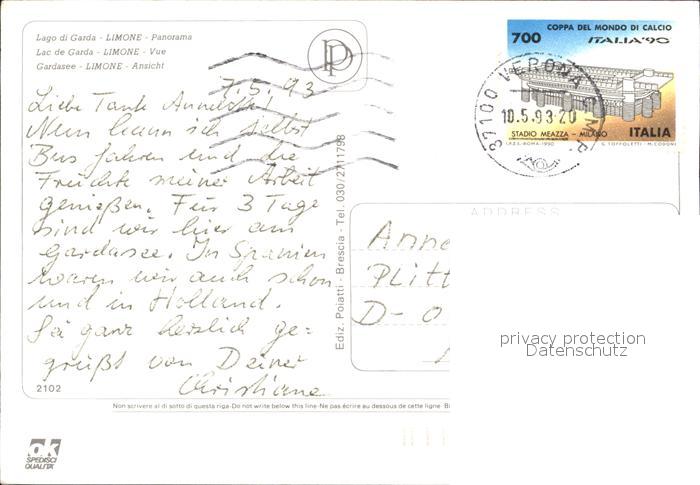 Lago di Garda - LIMONE - Panorama
Lac de Garda - LIMONE - Vue
Gardasee - LIMONE - Ansicht
7.5.93
Liebe Tante Annelotte!
Nun kann ich selbst
Bus fahren und die
Früchte meiner Arbeit
genießen. Für 3 Tage
sind wir hier am
Gardasee. In Spanien
waren wir auch schon
und in Holland.
Sei ganz herzlich ge=
grüßt von Deiner
Christiane
2102
Ediz. Poiatti - Brescia - Tel. 030/2711798
PD
700 COPPA DEL MONDO DI CALCIO
ITALIA'90
STADIO MEAZZA - MILANO ITALIA
I.P.Z.S.-ROMA-1990 G. TOFFOLETTI - M. CODONI
37100 VERONA
10.5.93-20
ADDRESS
Anne
Plitt
D-O
privacy protection
Datenschutz
Non scrivere al di sotto di questa riga-Do not write below this line-Ne pas écrire au dessous de cette ligne
ok
SPEDISCI
QUALITÀ